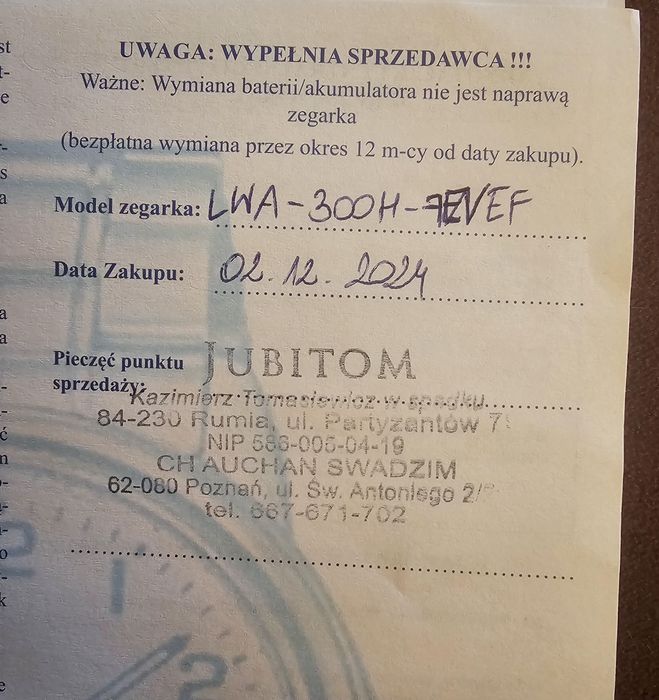 UWAGA: WYPEŁNIA SPRZEDAWCA !!!
Ważne: Wymiana baterii/akumulatora nie jest naprawą
zegarka
(bezpłatna wymiana przez okres 12 m-cy od daty zakupu).
Model zegarka: LWA-300H-7EVEF
Data Zakupu: 02.12.2024
Pieczęć punktu
sprzedaży:
JUBITOM
Kazimierz Tomasiewicz w spadku
84-230 Rumia, ul. Partyzantów 7
NIP 588-005-04-19
CH AUCHAN SWADZIM
62-080 Poznań, ul. Św. Antoniego 2/
tel. 667-671-702
2
1
2